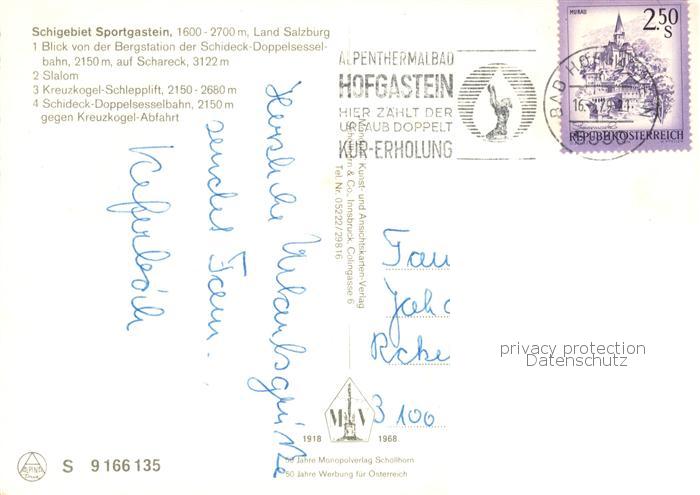 Schigebiet Sportgastein, 1600 - 2700 m, Land Salzburg
1 Blick von der Bergstation der Schideck-Doppelsessel-
bahn, 2150 m, auf Schareck, 3122 m
2 Slalom
3 Kreuzkogel-Schlepplift, 2150 - 2680 m
4 Schideck-Doppelsesselbahn, 2150 m
gegen Kreuzkogel-Abfahrt
ALPENTHERMALBAD
HOFGASTEIN
HIER ZÄHLT DER
URLAUB DOPPELT
KUR-ERHOLUNG
BAD HOFG
16.
MURAU
2.50
S
REPUBLIK ÖSTERREICH
Herzliche Urlaubsgrüße
sendet Fam.
Kunst- und Ansichtskarten-Verlag
& Co., Innsbruck, Colingasse 6
Tel. Nr. 05222/29816
Fam
Joh
3100
privacy protection
Datenschutz
1918 MV 1968
50 Jahre Monopolverlag Schöllhorn
50 Jahre Werbung für Österreich
ALPINA
Druck
S 9 166 135